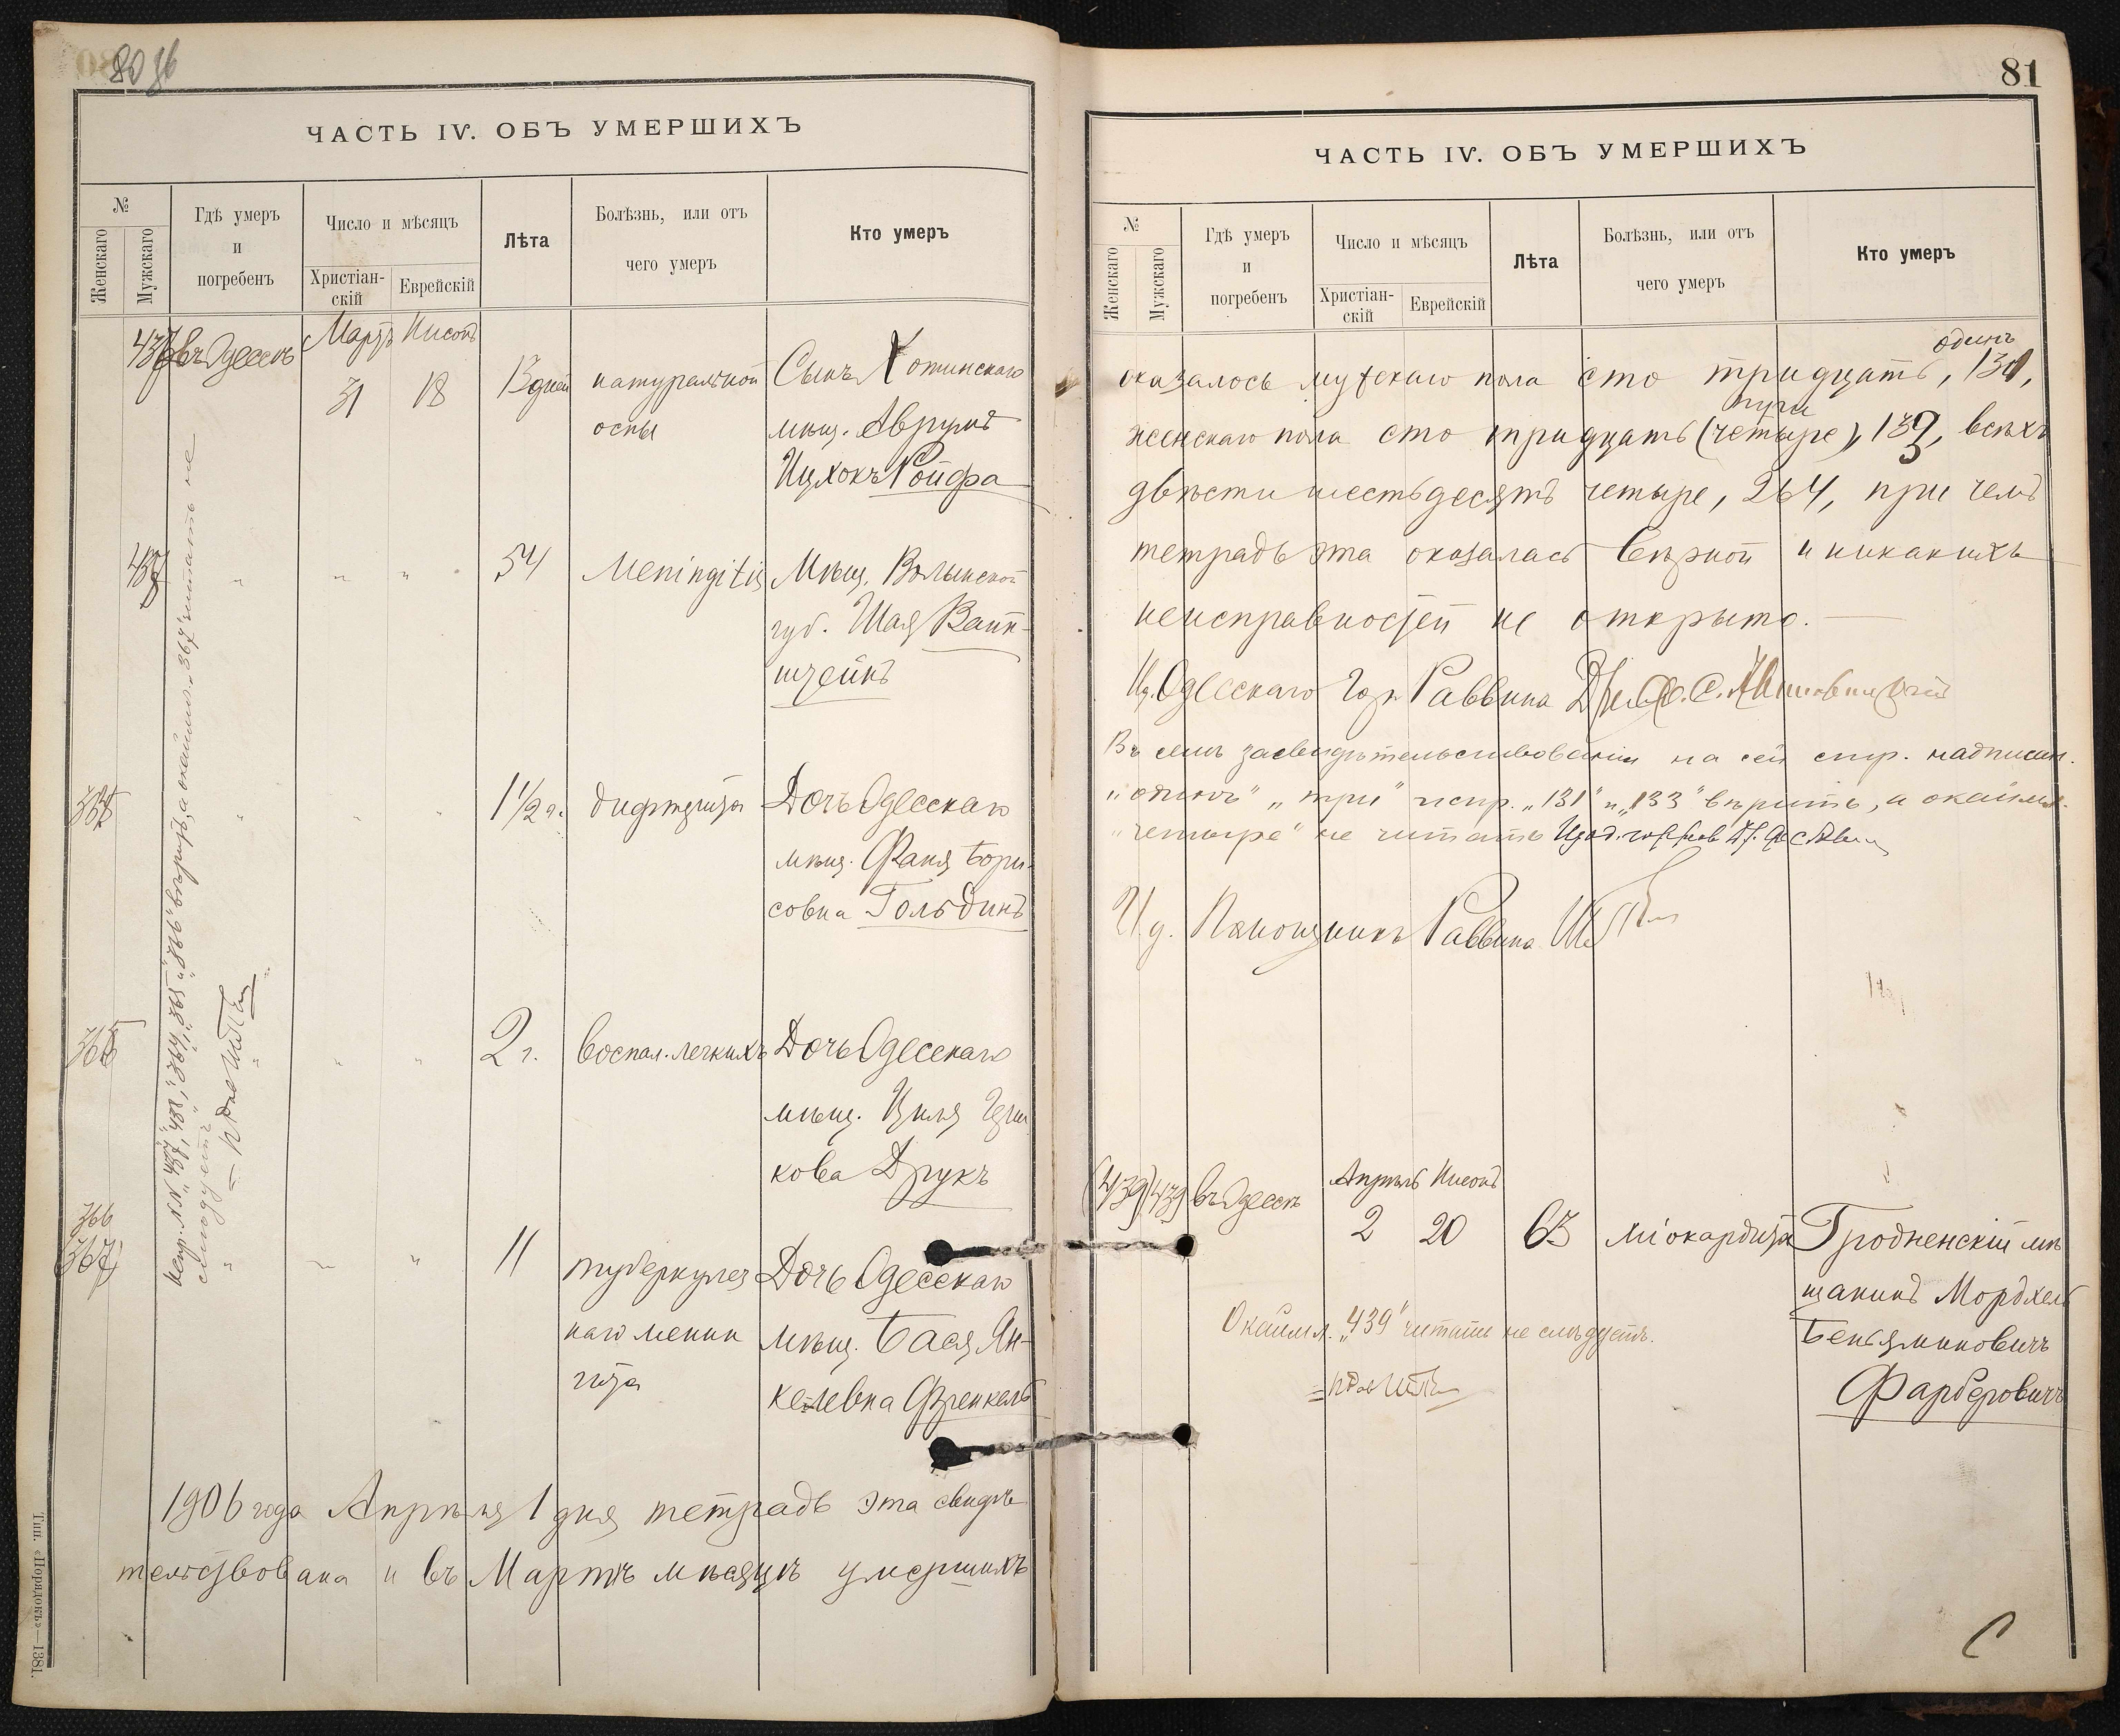 80 об
ЧАСТЬ IV. ОБЪ УМЕРШИХЪ
№
Женскаго
Мужскаго
Гдѣ умеръ
и
погребенъ
Число и мѣсяцъ
Христіан-
скій
Еврейскій
Лѣта
Болѣзнь, или отъ
чего умеръ
Кто умеръ
437 въ Одессѣ
Мартъ Нисонъ
31 18
13 дней
натуральной
оспы
Сынъ Хотинскаго
мѣщ. Аврумъ
Ицхокъ Ройфа
438 " " "
54
Meningitis
Мѣщ. Волынской
губ. Шая Вайн-
штейнъ
364 " " "
1 1/2 г.
дифтерита
Дочь Одесскаго
мѣщ. Фаня Бори-
совна Гольдинъ
365 " " "
2 г.
воспал. легкихъ
Дочь Одесскаго
мѣщ. Циля
кова Друкъ
366
(367) " " "
11
туберкулез
наго менин
гита
Дочь Одесскаго
мѣщ. Бася Ян-
келевна Френкель
Испр. №№ "437", "438", "364", "365" и "366" вѣрить, а окаймл. "367" читать не
слѣдуетъ
1906 года Апрѣля 1 дня тетрадь эта свидѣ
тельствована и въ Мартѣ мѣсяцѣ умершихъ
Тип. «Порядокъ»—1381.
81
ЧАСТЬ IV. ОБЪ УМЕРШИХЪ
№
Женскаго
Мужскаго
Гдѣ умеръ
и
погребенъ
Число и мѣсяцъ
Христіан-
скій
Еврейскій
Лѣта
Болѣзнь, или отъ
чего умеръ
Кто умеръ
одинъ
оказалось мужскаго пола сто тридцать, 131,
три
женскаго пола сто тридцать (четыре), 133, всѣхъ
двѣсти шестьдесятъ четыре, 264, при чемъ
тетрадь эта оказалась вѣрной и никакихъ
неисправностей не открыто.
Одесскаго Гор. Раввина
Въ семъ засвидѣтельствованіи на сей стр. надписан.
"одинъ" "три" испр. "131" и "133" вѣрить, а окаймл.
"четыре" не читать
И д. Помощникъ Раввина
(439) 439 въ Одессѣ
Апрѣль Нисонъ
2 20
63
міокардита
Гродненскій мѣ
щанинъ Мордхель
Беньяминовичъ
Фарберовичъ
Окаймл. "439" читать не слѣдуетъ.